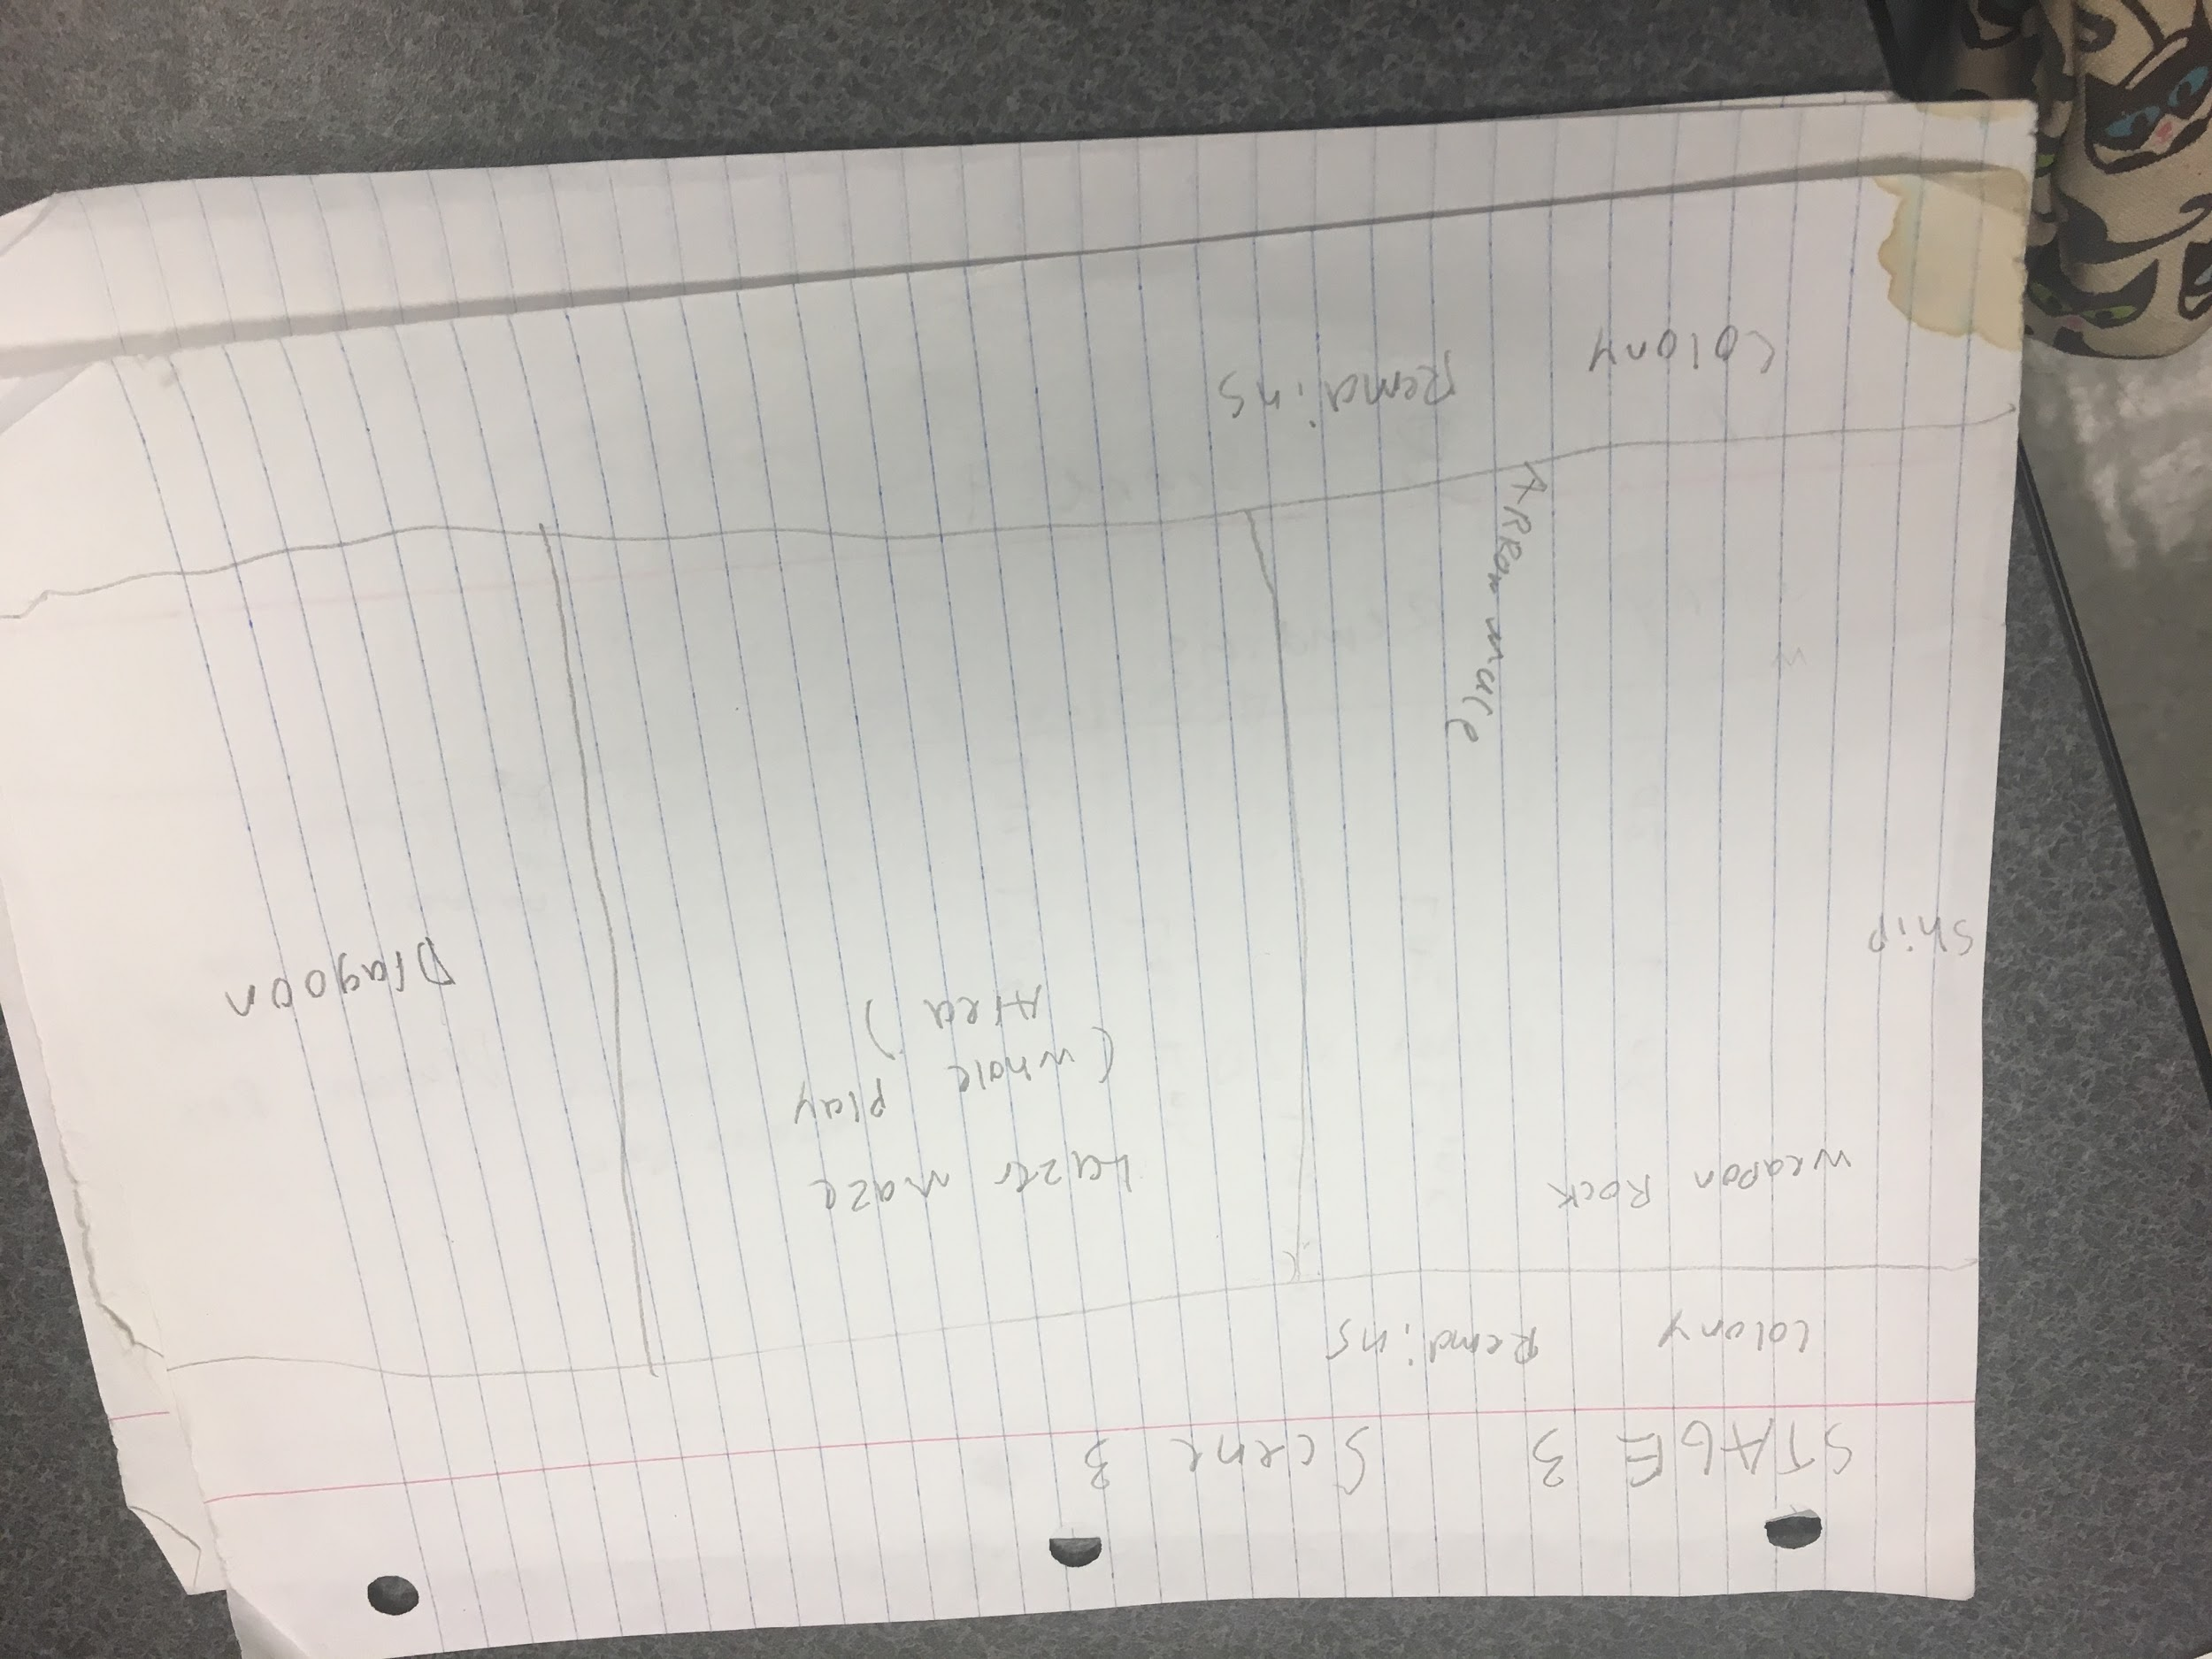 STAGE 3 Scene 3
Colony Remains
Weapon Rock
Lazer maze
(whole play
Area)
Ship
Dragoon
ARRow mace
Colony Remains